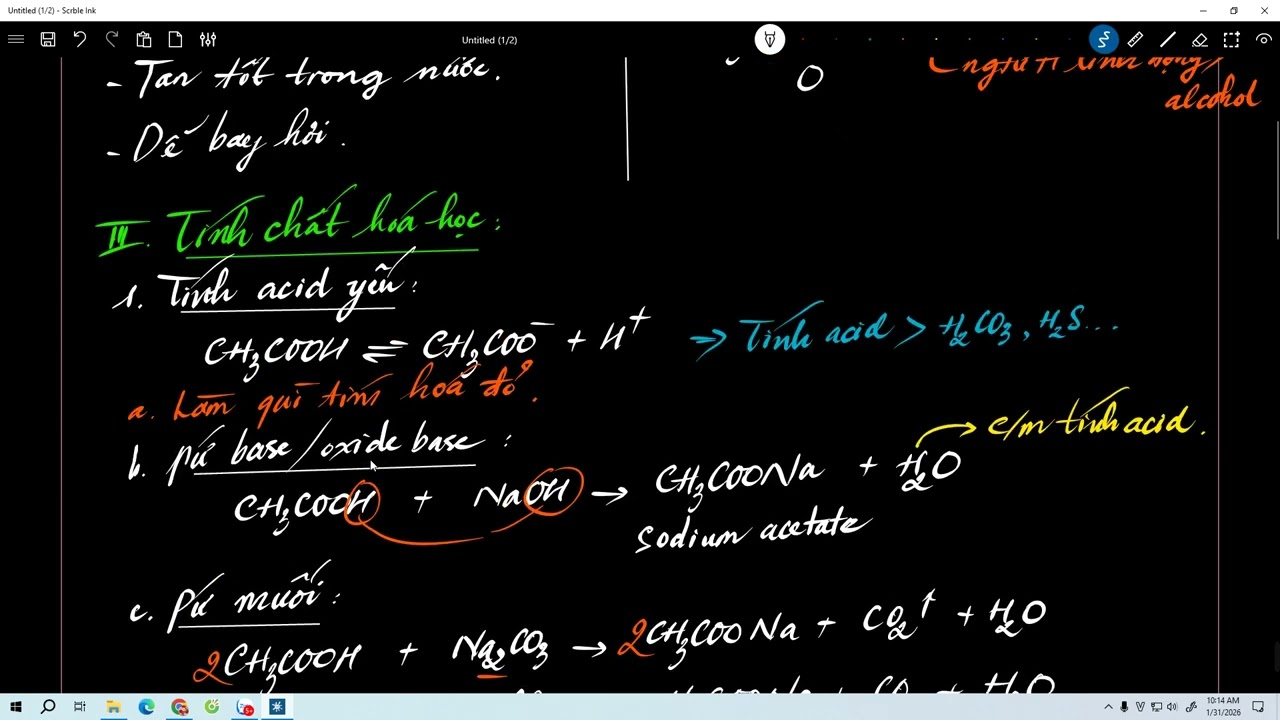 Untitled (1/2) - Scrble Ink
Untitled (1/2)
- Tan tốt trong nước.
- Dễ bay hơi.
O
alcohol
III. Tính chất hoá học:
1. Tính acid yếu:
CH3COOH ⇌ CH3COO⁻ + H⁺ ⇒ Tính acid > H2CO3, H2S...
a. Làm quì tím hoá đỏ.
b. Pứ base/oxide base: → c/m tính acid.
CH3COOH + NaOH → CH3COONa + H2O
sodium acetate
c. Pứ muối:
2CH3COOH + Na2CO3 → 2CH3COONa + CO2↑ + H2O
10:14 AM
1/31/2026